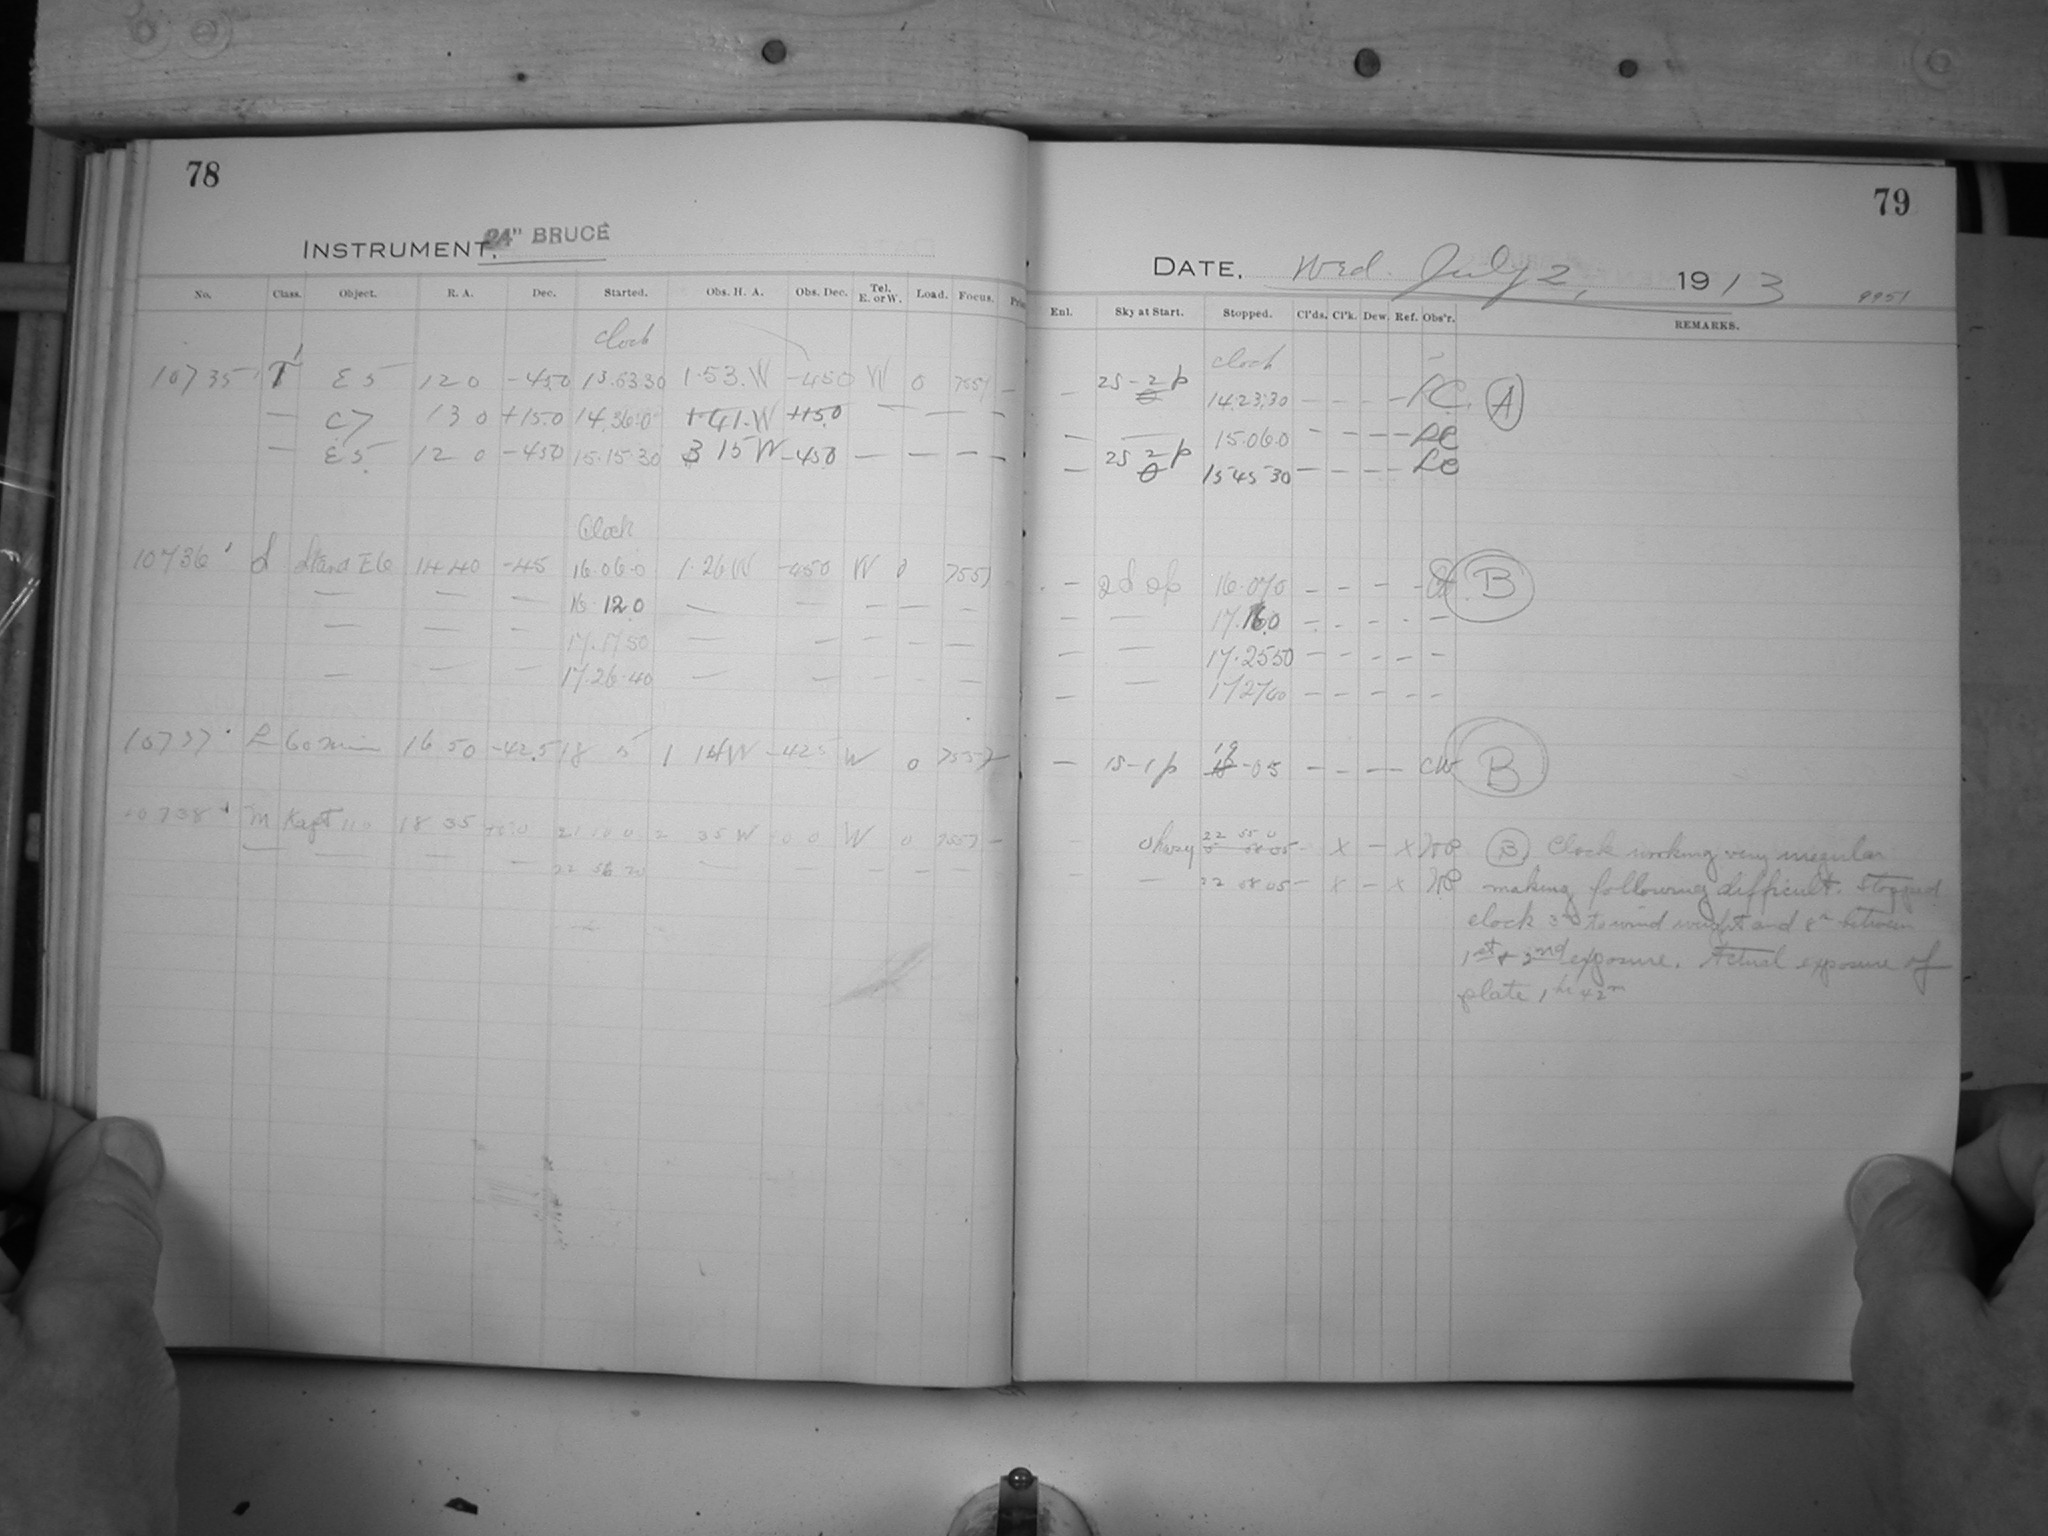 78
INSTRUMENT, 24" BRUCE
No. Class. Object. R. A. Dec. Started. Obs. H. A. Obs. Dec. Tel. E. or W. Load. Focus.
Clock
10735 T E5 12 0 -45.0 13.53.30 1.53.W -45.0 W 0 7557 –
— C7 13 0 +15.0 14.36.0 1.41.W +15.0 — — — –
— E5 12 0 -45.0 15.15.30 3 15 W -45.0 — — — –
Clock
10736 S Stand E6 14 40 -45 16.06.0 1.26 W -45.0 W 0 7557
— — — 16 12.0 — — — — —
— — — 17.17.50 — — — — —
— — — 17.26.40 — — — — —
10737 L 60 min 16 50 -42.5 18 5 1 14W -42.5 W 0 7557 –
10738 M Kapt 18 35 2 35 W 0 0 W 0 7557 –
— — — — 22 56 20 — — — — —
79
DATE, Wed. July 2, 1913
9951
Enl. Sky at Start. Stopped. Cl'ds. Cl'k. Dew. Ref. Obs'r. REMARKS.
clock
– 2S - 2 p 14.23.30 – – – – LC. A
– — 15.06.0 – – – – LC
– 2S 2 p 15 45 30 – – – – LC
– 2S 2p 16.07.0 – – – – B
– — 17.16.0 – – – – –
– — 17.25 50 – – – – –
– — 17 27 40 – – – – –
– 1S-1p 19 -05 – – – – CW B
Hazy 22 55 0 – x – x B Clock working very irregular
– — 22 58 05 – x – x making following difficult. Stopped
clock 3m to wind weight and 8m between
1st & 2nd exposure. Actual exposure of
plate 1hr 42m